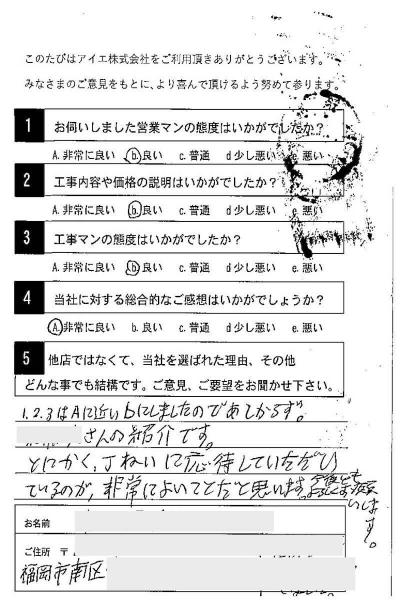 このたびはアイエ株式会社をご利用頂きありがとうございます。
みなさまのご意見をもとに、より喜んで頂けるよう努めて参ります。
1 お伺いしました営業マンの態度はいかがでしたか?
A. 非常に良い b. 良い c. 普通 d 少し悪い e. 悪い
2 工事内容や価格の説明はいかがでしたか?
A. 非常に良い b. 良い c. 普通 d 少し悪い e. 悪い
3 工事マンの態度はいかがでしたか?
A. 非常に良い b. 良い c. 普通 d 少し悪い e. 悪い
4 当社に対する総合的なご感想はいかがでしょうか?
A. 非常に良い b. 良い c. 普通 d 少し悪い e. 悪い
5 他店ではなくて、当社を選ばれた理由、その他
どんな事でも結構です。ご意見、ご要望をお聞かせ下さい。
1.2.3はAに近いbにしましたのであしからず。
さんの紹介です。
とにかく、丁ねいに応待していただ
ているのが、非常によいことだと思います。
今後とも
お名前
ご住所 〒
福岡市南区